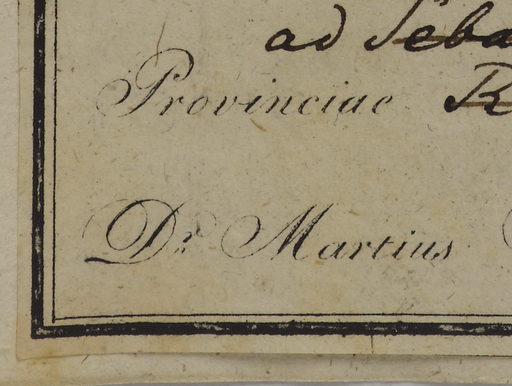 ad Seba
Provinciae R
Dr. Martius